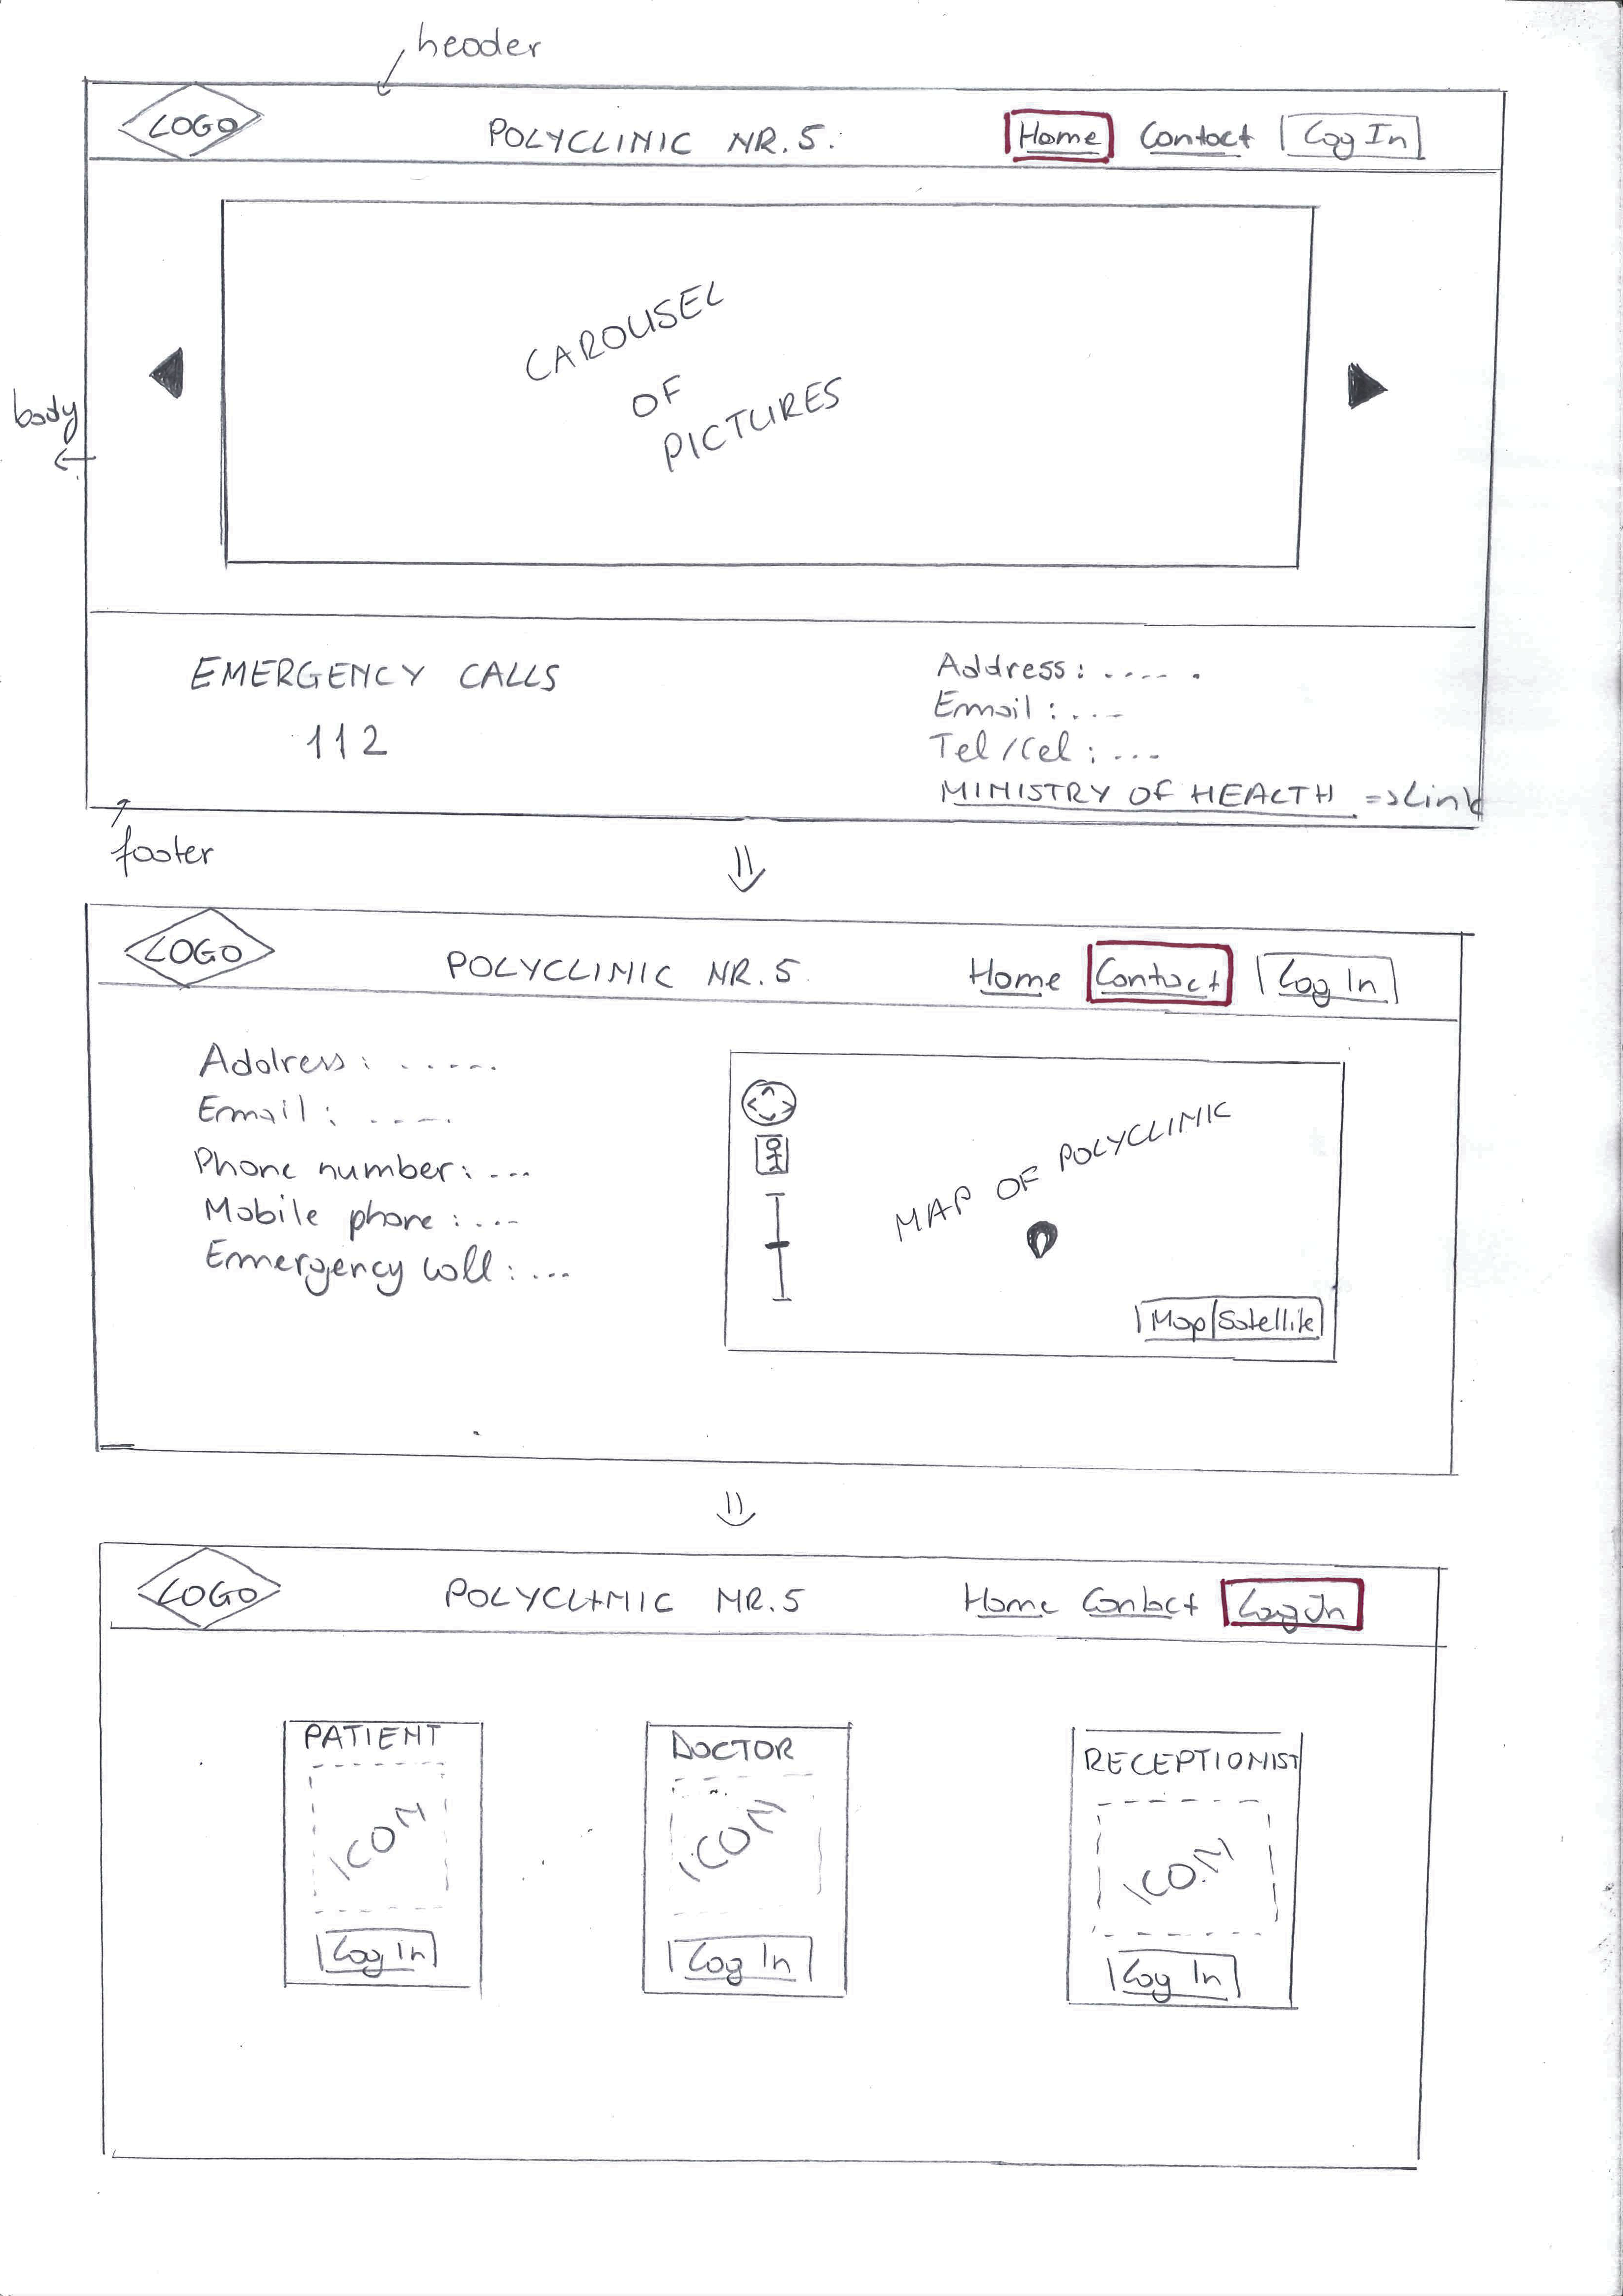 header
LOGO POLYCLINIC NR.5. Home Contact Log In
CAROUSEL
OF
PICTURES
body
EMERGENCY CALLS
112
Address: ..... .
Email: ....
Tel/Cel: ...
MINISTRY OF HEALTH => Link
footer
LOGO POLYCLINIC NR.5 Home Contact Log In
Address: .....
Email: .....
Phone number: ...
Mobile phone: ...
Emergency call: ...
MAP OF POLYCLINIC
Map|Satellite
LOGO POLYCLINIC NR.5 Home Contact Log In
PATIENT
ICON
Log In
DOCTOR
ICON
Log In
RECEPTIONIST
ICON
Log In